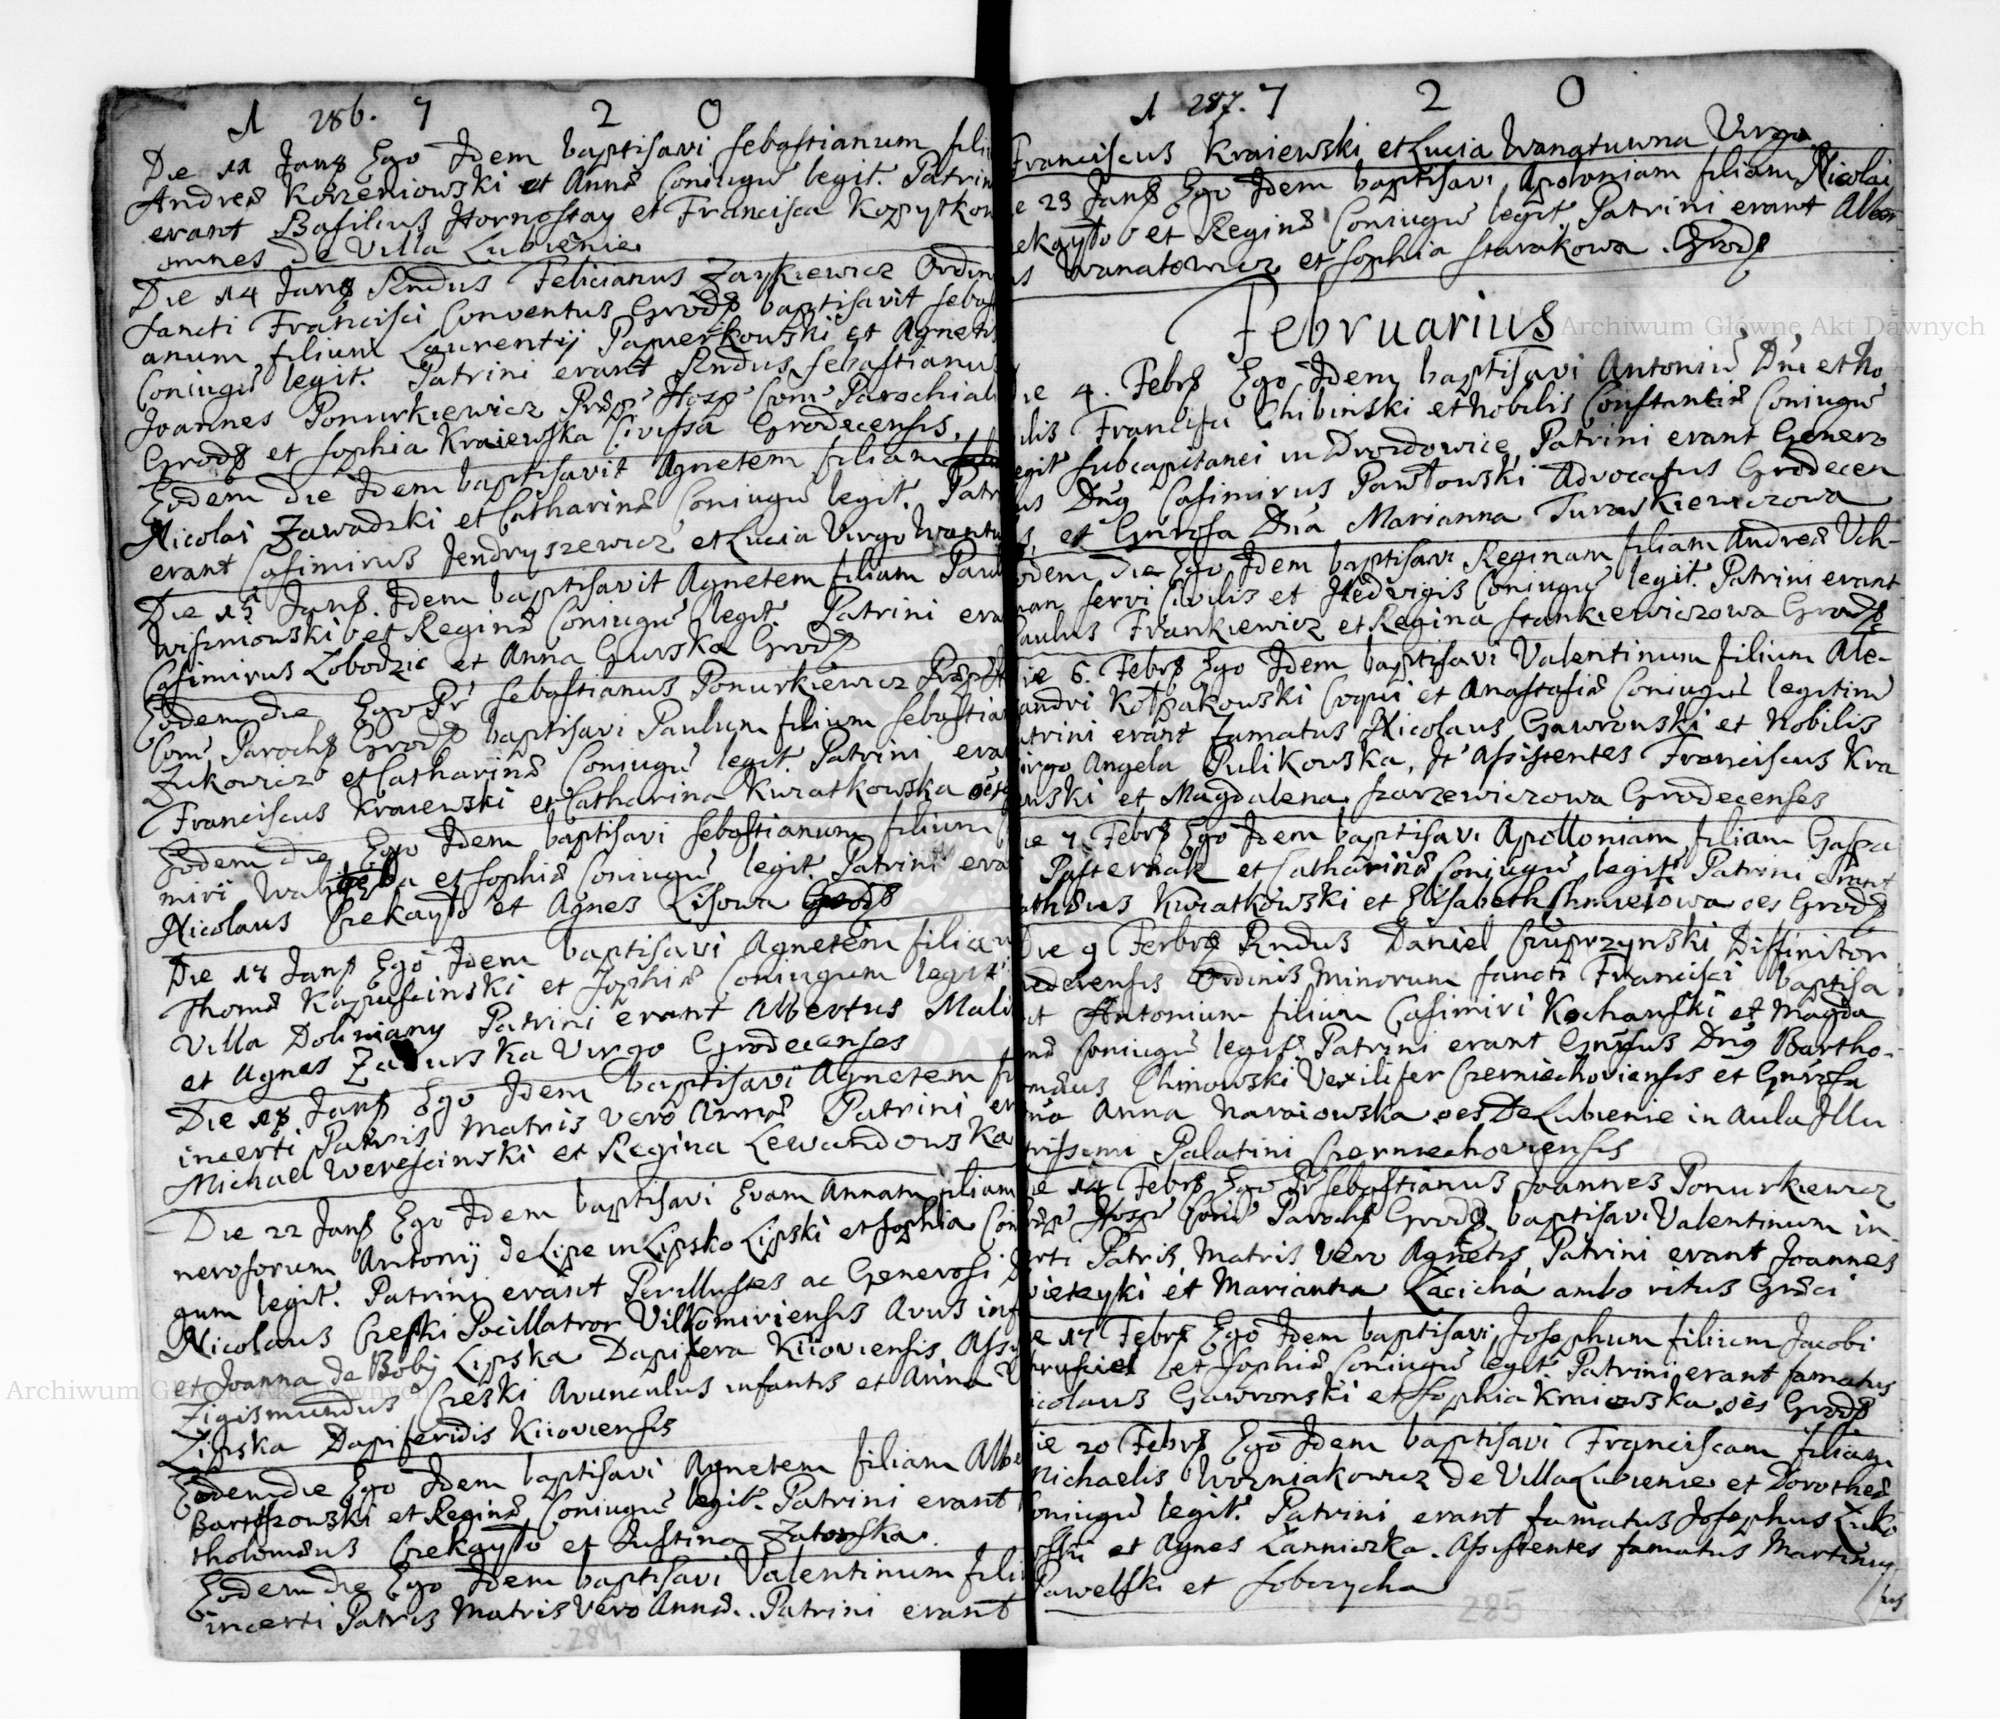 1 286. 7 2 0
Die 11 Janr Ego Idem baptisavi Sebastianum fili
Andreæ Korzeniowski et Annæ Coniugũ legit. Patrin
erant Basilius Hornostay et Francisca Kopystkow
omnes de Villa Lubienie
Die 14 Janr Rndus Felicianus Zaykiewicz Ordin
Sancti Francisci Conventus Grod baptisavit Sebas
anum filium Laurentij Papierkowski et Agnetis
Coniugũ legit. Patrini erant Rndus Sebastianus
Joannes Ponurkiewicz Præp Hosp Com Parochial
Grod et Sophia Kraiewska Civissa Grodecensis.
Eodem die Idem baptisavit Agnetem filiam
Nicolai Zawadzki et Catharinæ Coniugũ legit. Patr
erant Casimirus Jendryszewicz et Lucia Virgo Wantu
Die 15 Janr. Idem baptisavit Agnetem filiam Paul
Wiszniowski et Reginæ Coniugũ legit. Patrini era
Casimirus Lobodzic et Anna Gurska Grod
Eodem die Ego Pr Sebastianus Ponurkiewicz Præp H
Com Paroch Grod baptisavi Paulum filium Sebastia
Zukowicz et Catharinæ Coniugũ legit. Patrini era
Franciscus Kraiewski et Catharina Kwiatkowska oes
Eodem die Ego Idem baptisavi Sebastianum filium
miri et Sophiæ Coniugũ legit. Patrini era
Nicolaus Czekayło et Agnes Lisowa Grod
Die 17 Janr Ego Idem baptisavi Agnetem filiam
Thomæ Kapuscinski et Sophiæ Coniugum legit.
Villa Doliniany Patrini erant Albertus Mali
et Agnes Zadurska Virgo Grodecenses
Die 18 Janr Ego Idem baptisavi Agnetem fi
incerti Patris Matris vero Annæ Patrini er
Michael Werescinski et Regina Lewandowska
Die 22 Janr Ego Idem baptisavi Evam Annam filiam
nerosorum Antonij de Lipe in Lipsko Lipski et Sophia Con
gum legit. Patrini erant Perillustres ac Generosi D
Nicolaus Czeski Pocillatror Vilkomiriensis Avus inf
et Joanna de Boby Lipska Dapifera Kiioviensis Assi
Zigismundus Czeski Avunculus infantis et Anna V
Lipska Dapiferidis Kiioviensis
Eodem die Ego Idem baptisavi Agnetem filiam Albe
Bartoszowski et Reginæ Coniugũ legit. Patrini erant
tholomæus Czekayło et Justina Zatorska.
Eodem die Ego Idem baptisavi Valentinum fili
incerti Patris Matris vero Annæ. Patrini erant
284
1 287. 7 2 0
Franciscus Kraiewski et Lucia Wanatuwna Virgo
e 23 Janr Ego Idem baptisavi Apoloniam filiam Nicolai
ekayło et Reginæ Coniugũ legit. Patrini erant Alber
us Wanatowicz et Sophia Starakowa. Grod
Februarius
ie 4. Febr Ego Idem baptisavi Antoniũ Dni et No
ilis Francisci Chibinski et Nobilis Constantiæ Coniugũ
egit Subcapitanei in Drozdowice, Patrini erant Genero
us Dng Casimirus Pawłowski Advocatus Grodecen
s, et Gnrosa Dna Marianna Turaskiewiczowa
odem die Ego Idem baptisavi Reginam filiam Andreæ Uch-
man Servi Civilis et Hedvigis Coniugũ legit. Patrini erant
Paulus Frankiewicz et Regina Stankiewiczowa Grod
Die 6. Febr Ego Idem baptisavi Valentinum filium Ale-
andri Kołpakowski Coqui et Anastasiæ Coniugũ legitim
atrini erant famatus Nicolaus Gawronski et Nobilis
irgo Angela Pulikowska, It Assistentes Franciscus Kra
wski et Magdalena Szarzewiczowa Grodecenses
ie 7. Febr Ego Idem baptisavi Apolloniam filiam Gaspa
i Pasternak et Catharinæ Coniugũ legit. Patrini erant
athæus Kwiatkowski et Elisabeth Chmielowa oes Grod
Die 9 Ferbr Rndus Daniel Czuprzynski Diffinitor
edecensis Ordinis Minorum Sancti Francisci baptisa
it Antonium filium Casimiri Kochanski et Magda
næ Coniugũ legit. Patrini erant Gnrsus Dng Bartho-
mæus Chinowski Vexilifer Czerniechoviensis et Gnrosa
na Anna Naraiowska oes De Lubienie in Aula Illu
trissimi Palatini Czerniechoviensis
ie 14 Febr Ego Pr Sebastianus Joannes Ponurkiewicz
Præp Hosp Com Paroch Grod baptisavi Valentinum in
erti Patris, Matris vero Agnetis, Patrini erant Joannes
wietzyki et Marianna Łacicha ambo ritus Græci
e 17 Febr Ego Idem baptisavi Josephum filium Jacobi
et Sophiæ Coniugũ legit. Patrini erant famatus
icolaus Gawronski et Sophia Kraiewska oes Grod
ie 20 Febr Ego Idem baptisavi Franciscam filiam
Michaelis Wozniakowicz de Villa Lubienie et Dorotheæ
Coniugũ legit. Patrini erant famatus Josephus Zuko
wski et Agnes Łanniczka. Assistentes famatus Martinus
Pawelski et Sobczycha
285
Archiwum Główne Akt Dawnych
Archiwum Główne Akt Dawnych